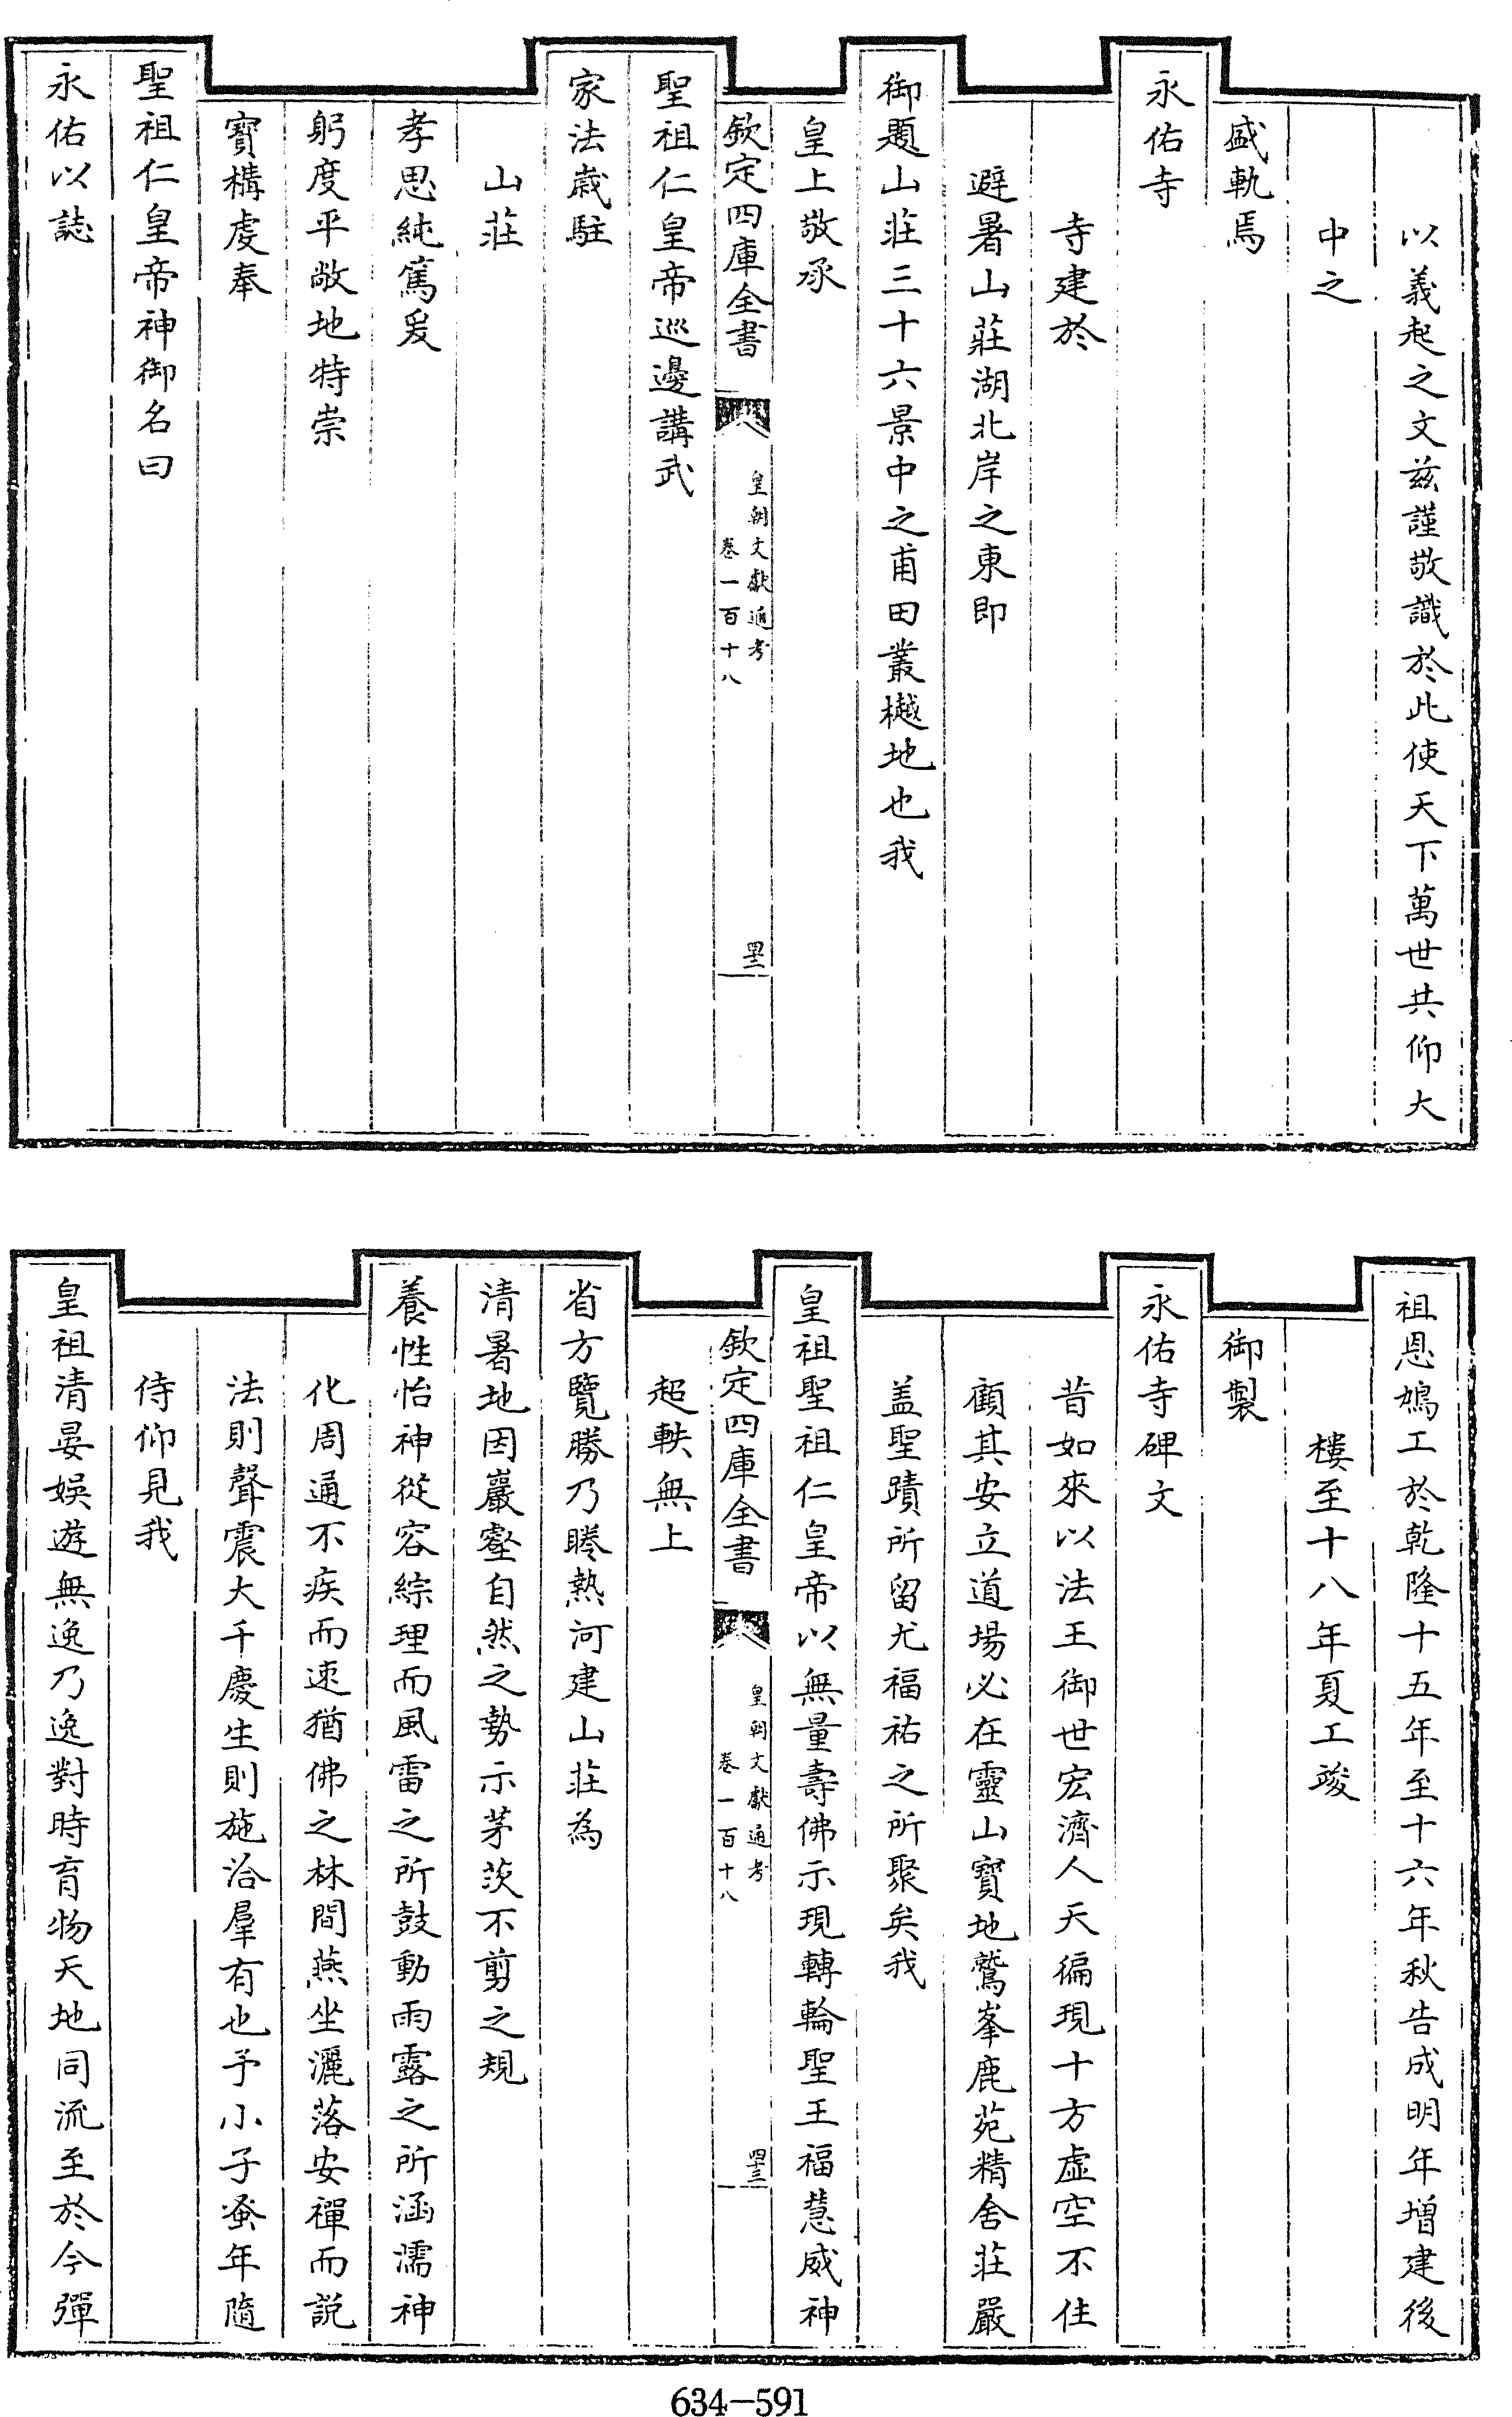 以義起之文兹謹敬識於此使天下萬世共仰大
中之
盛軌焉
永佑寺
寺建於
避暑山莊湖北岸之東即
御題山莊三十六景中之甫田叢樾地也我
皇上敬承
欽定四庫全書
皇朝文獻通考
卷一百十八
四二
聖祖仁皇帝巡邊講武
家法歲駐
山莊
孝思純篤爰
躬度平敞地特崇
寶構虔奉
聖祖仁皇帝神御名曰
永佑以誌
祖恩鳩工於乾隆十五年至十六年秋告成明年增建後
樓至十八年夏工竣
御製
永佑寺碑文
昔如來以法王御世宏濟人天徧現十方虛空不住
顧其安立道場必在靈山寶地鷲峯鹿苑精舍莊嚴
盖聖蹟所留尤福祐之所聚矣我
皇祖聖祖仁皇帝以無量壽佛示現轉輪聖王福慧威神
欽定四庫全書
皇朝文獻通考
卷一百十八
四三
超軼無上
省方覽勝乃睠熱河建山莊為
清暑地因巖壑自然之勢示茅茨不剪之規
養性怡神從容綜理而風雷之所鼓動雨露之所涵濡神
化周通不疾而速猶佛之林間燕坐灑落安禪而説
法則聲震大千慶生則施洽羣有也予小子蚤年隨
侍仰見我
皇祖清晏娛遊無逸乃逸對時育物天地同流至於今彈
634-591